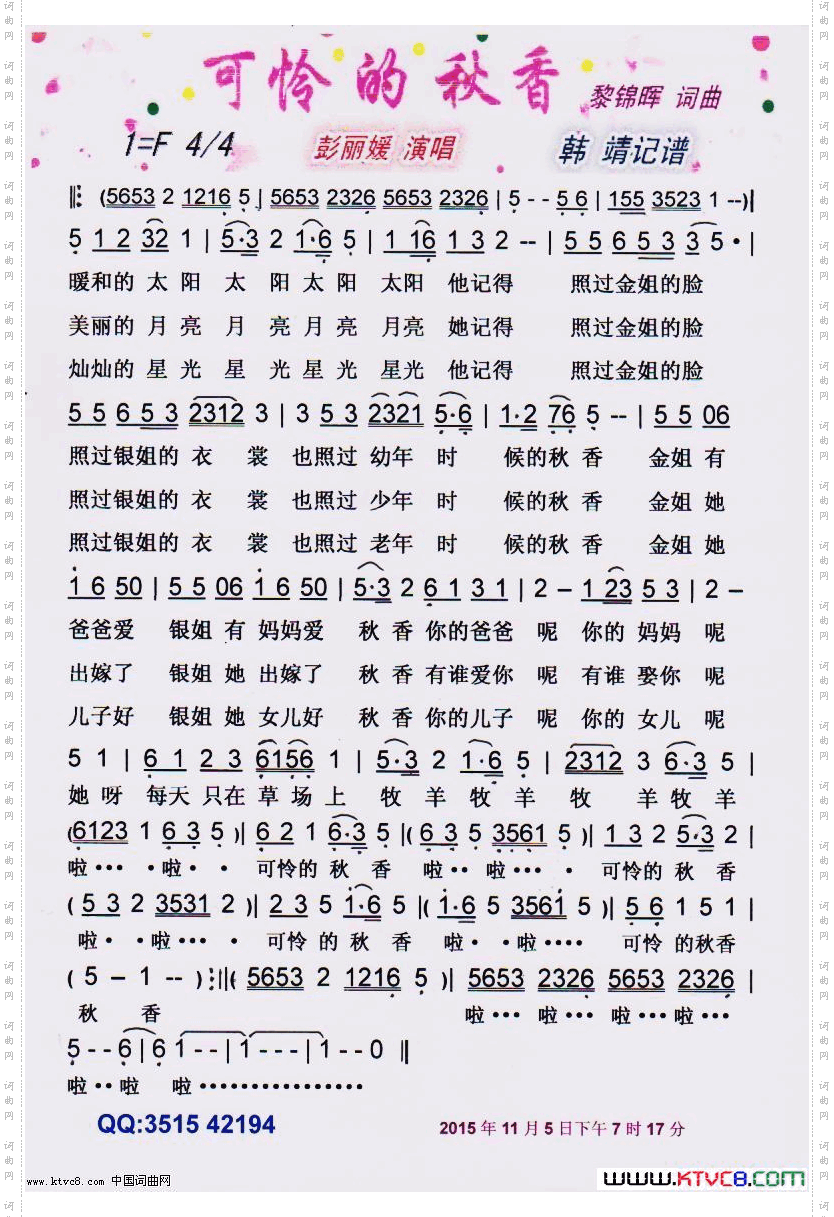 可怜的秋香
黎锦晖 词曲
1=F 4/4 彭丽媛 演唱 韩 靖记谱
‖: (5653 2 1216 5 | 5653 2326 5653 2326 | 5 - - 5 6 | 155 3523 1 --)|
5 1 2 32 1 | 5·3 2 1·6 5 | 1 16 1 3 2 -- | 5 5 6 5 3 3 5· |
暖和的 太 阳 太 阳 太 阳 太阳 他记得 照过金姐的脸
美丽的 月 亮 月 亮 月 亮 月亮 她记得 照过金姐的脸
灿灿的 星 光 星 光 星 光 星光 他记得 照过金姐的脸
5 5 6 5 3 2312 3 | 3 5 3 2321 5·6 | 1·2 76 5 -- | 5 5 06
照过银姐的 衣 裳 也照过 幼年 时 候的秋 香 金姐 有
照过银姐的 衣 裳 也照过 少年 时 候的秋 香 金姐 她
照过银姐的 衣 裳 也照过 老年 时 候的秋 香 金姐 她
1 6 50 | 5 5 06 1 6 50 | 5·3 2 6 1 3 1 | 2 – 1 23 5 3 | 2 –
爸爸爱 银姐 有 妈妈爱 秋 香 你的爸爸 呢 你的 妈妈 呢
出嫁了 银姐 她 出嫁了 秋 香 有谁爱你 呢 有谁 娶你 呢
儿子好 银姐 她 女儿好 秋 香 你的儿子 呢 你的 女儿 呢
5 1 | 6 1 2 3 6156 1 | 5·3 2 1·6 5 | 2312 3 6·3 5 |
她 呀 每天 只在 草 场 上 牧 羊 牧 羊 牧 羊 牧 羊
(6123 1 6 3 5 )| 6 2 1 6·3 5 |( 6 3 5 3561 5 )| 1 3 2 5·3 2 |
啦··· ·啦· · 可怜的 秋 香 啦·· 啦··· · 可怜的 秋 香
( 5 3 2 3531 2 )| 2 3 5 1·6 5 |( 1·6 5 3561 5 )| 5 6 1 5 1 |
啦· ·啦··· · 可怜 的 秋 香 啦· ·啦···· 可怜 的秋香
( 5 – 1 -- ) :‖( 5653 2 1216 5 )| 5653 2326 5653 2326 |
秋 香 啦··· 啦··· 啦···啦···
5 - - 6 | 6 1 - - | 1 - - - | 1 - - 0 ‖
啦··啦 啦················
QQ:3515 42194
2015 年 11 月 5 日下午 7 时 17 分
www.ktvc8.com 中国词曲网
WWW.KTVC8.COM
词曲网